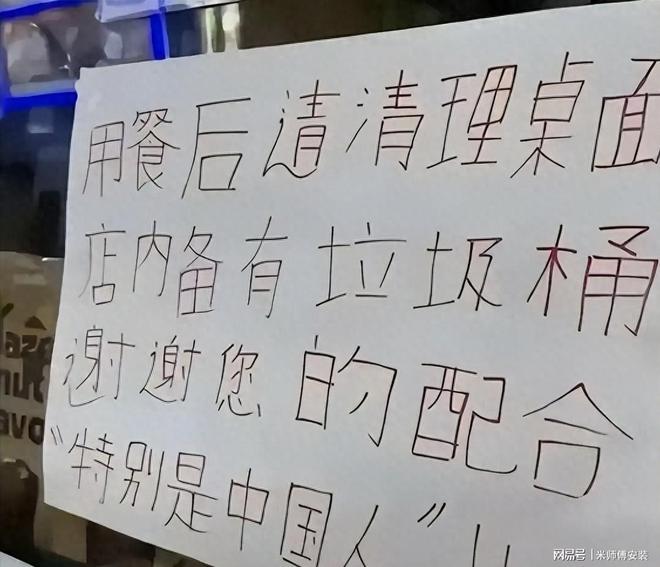 用餐后请清理桌面
店内备有垃圾桶
谢谢您的配合
"特别是中国人"!!
网易号 | 米师傅安装